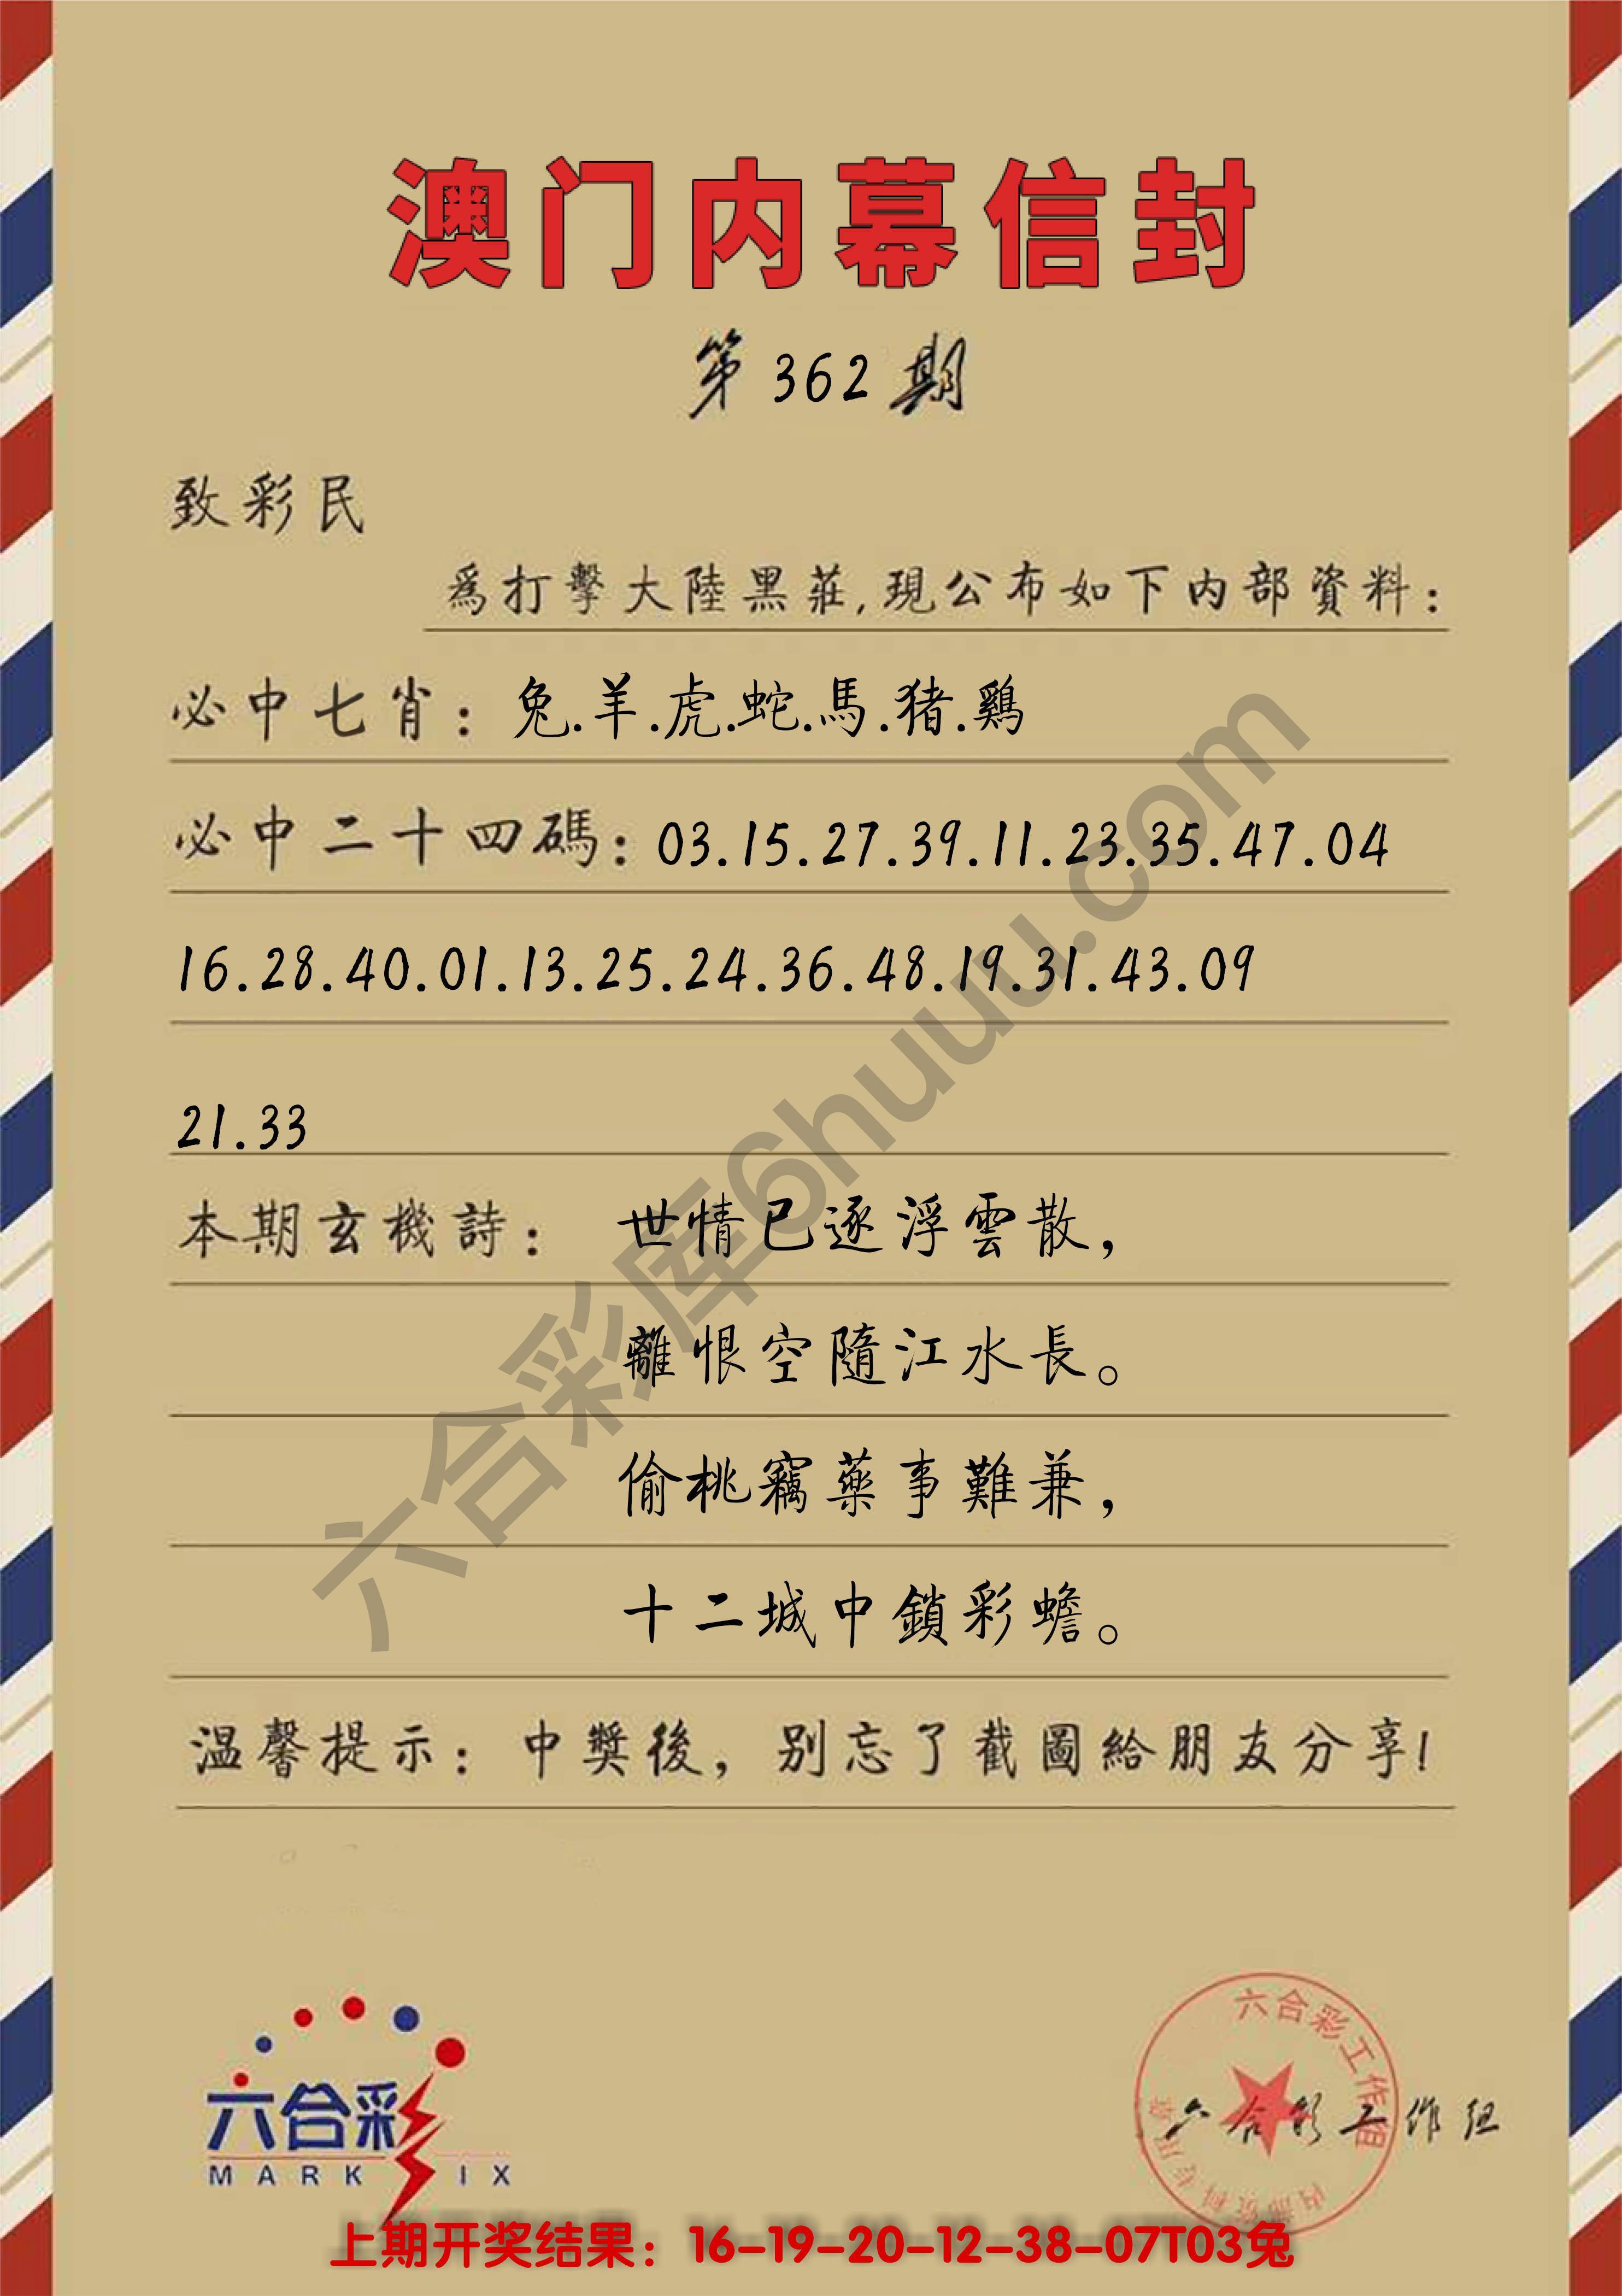 澳门内幕信封
第362期
致彩民
爲打擊大陸黑莊,現公布如下内部資料:
必中七肖: 兔.羊.虎.蛇.馬.猪.鷄
必中二十四碼: 03.15.27.39.11.23.35.47.04
16.28.40.01.13.25.24.36.48.19.31.43.09
21.33
本期玄機詩: 世情已逐浮雲散,
離恨空隨江水長。
偷桃竊藥事難兼,
十二城中鎖彩蟾。
温馨提示: 中獎後, 别忘了截圖給朋友分享!
六合彩库6huuu.com
六合彩
MARK SIX
六合彩工作组
六合彩工作组
上期开奖结果：16-19-20-12-38-07T03兔